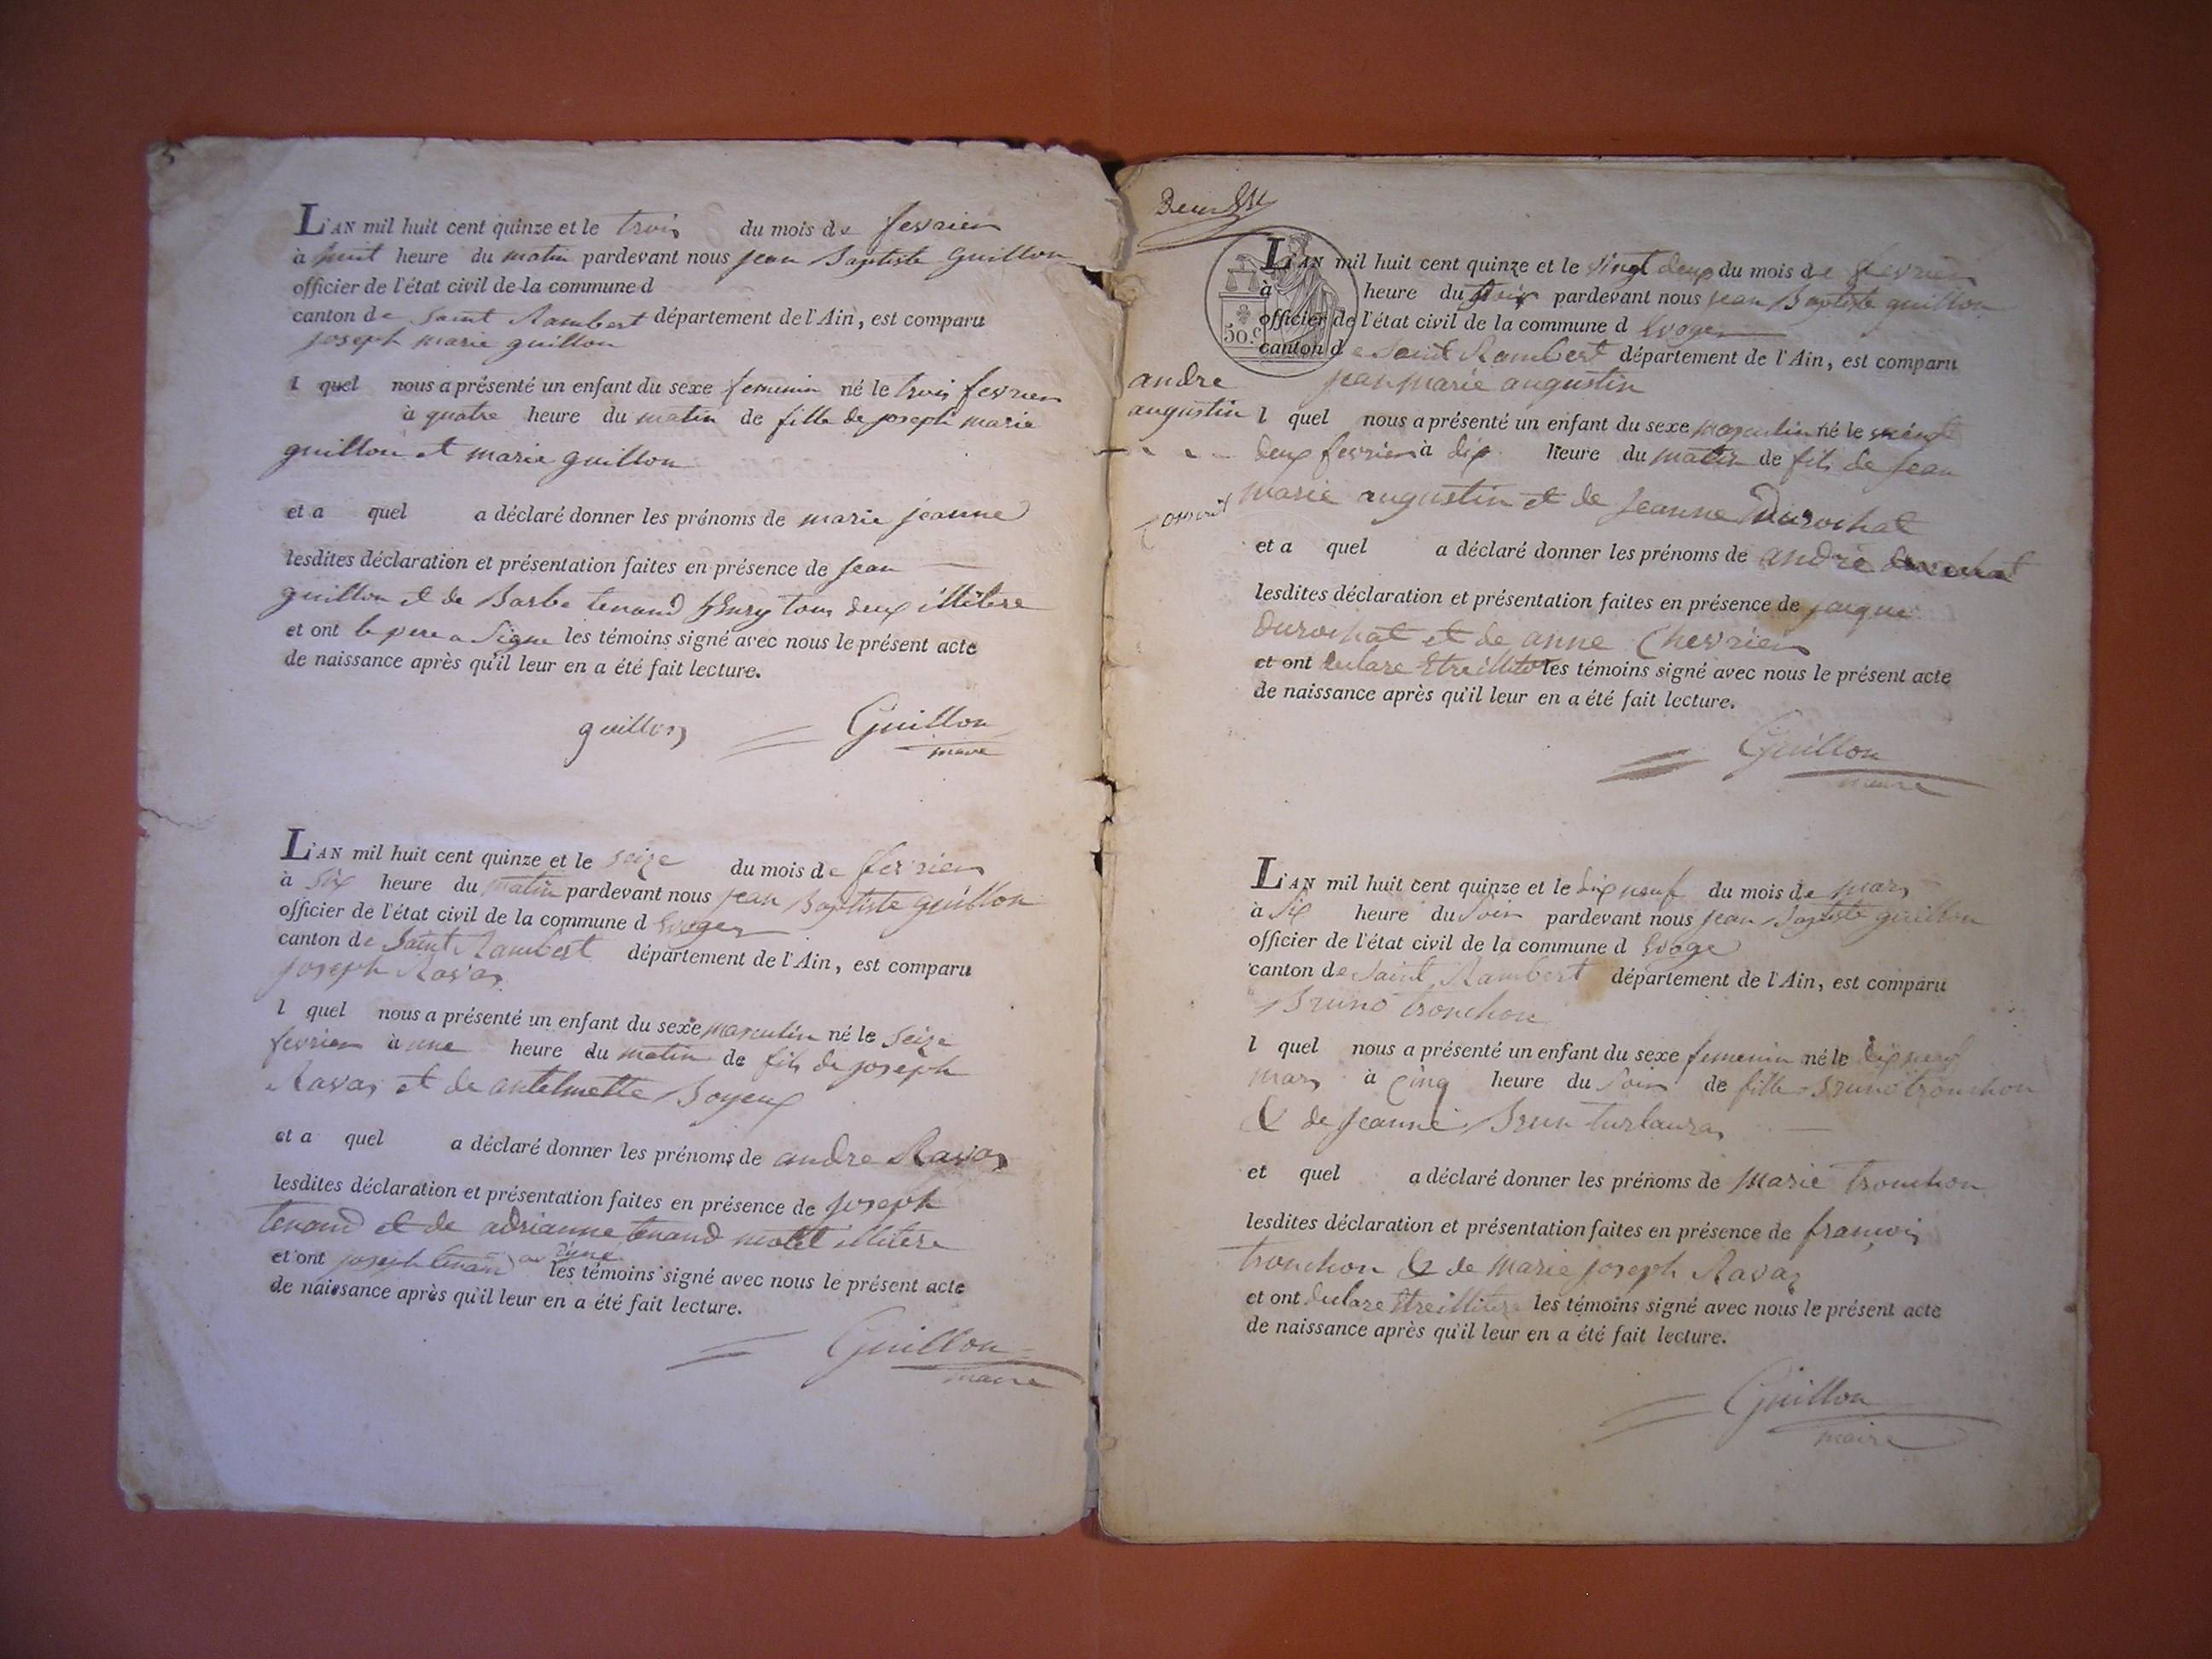 L'AN mil huit cent quinze et le trois du mois de fevrier
à huit heure du matin pardevant nous jean Baptiste guillon
officier de l'état civil de la commune d
canton de Saint Rambert département de l'Ain, est comparu
joseph marie guillon
l quel nous a présenté un enfant du sexe feminin né le trois fevrier
à quatre heure du matin de fille de joseph marie
guillon et marie guillon
et a quel a déclaré donner les prénoms de marie jeanne
lesdites déclaration et présentation faites en présence de jean
guillon et de Barbe tenand henry tous deux illitere
et ont le pere a Signe les témoins signé avec nous le présent acte
de naissance après qu'il leur en a été fait lecture.
guillon Guillon
maire
L'AN mil huit cent quinze et le seize du mois de fevrier
à six heure du matin pardevant nous jean Baptiste guillon
officier de l'état civil de la commune d Evoges
canton de Saint Rambert département de l'Ain, est comparu
joseph Ravas
l quel nous a présenté un enfant du sexe masculin né le seize
fevrier à une heure du matin de fils de joseph
Ravas et de antelmette Boyeux
et a quel a déclaré donner les prénoms de andre Ravas
lesdites déclaration et présentation faites en présence de joseph
tenand et de adrianne tenand motet illitere
et ont joseph tenand les témoins signé avec nous le présent acte
de naissance après qu'il leur en a été fait lecture.
Guillon
maire
50.c
L'AN mil huit cent quinze et le vingt deux du mois de fevrier
à heure du soir pardevant nous jean Baptiste guillon
officier de l'état civil de la commune d Evoges
canton de Saint Rambert département de l'Ain, est comparu
andre
augustin
jean marie augustin
l quel nous a présenté un enfant du sexe masculin né le vingt
deux fevrier à dix heure du matin de fils de jean
marie augustin et de jeanne Durochat
et a quel a déclaré donner les prénoms de andré
lesdites déclaration et présentation faites en présence de jacque
Durochat et de anne Chevrier
et ont declare etre illitere les témoins signé avec nous le présent acte
de naissance après qu'il leur en a été fait lecture.
Guillon
maire
L'AN mil huit cent quinze et le dix neuf du mois de mars
à six heure du soir pardevant nous jean Baptiste guillon
officier de l'état civil de la commune d Evoge
canton de Saint Rambert département de l'Ain, est comparu
Bruno tronchon
l quel nous a présenté un enfant du sexe femenin né le dix neuf
mars à cinq heure du soir de fille Bruno tronchon
& de jeanne Brun turlauras
et quel a déclaré donner les prénoms de marie tronchon
lesdites déclaration et présentation faites en présence de francois
tronchon & de marie joseph Ravas
et ont declare etre illitere les témoins signé avec nous le présent acte
de naissance après qu'il leur en a été fait lecture.
Guillon
maire